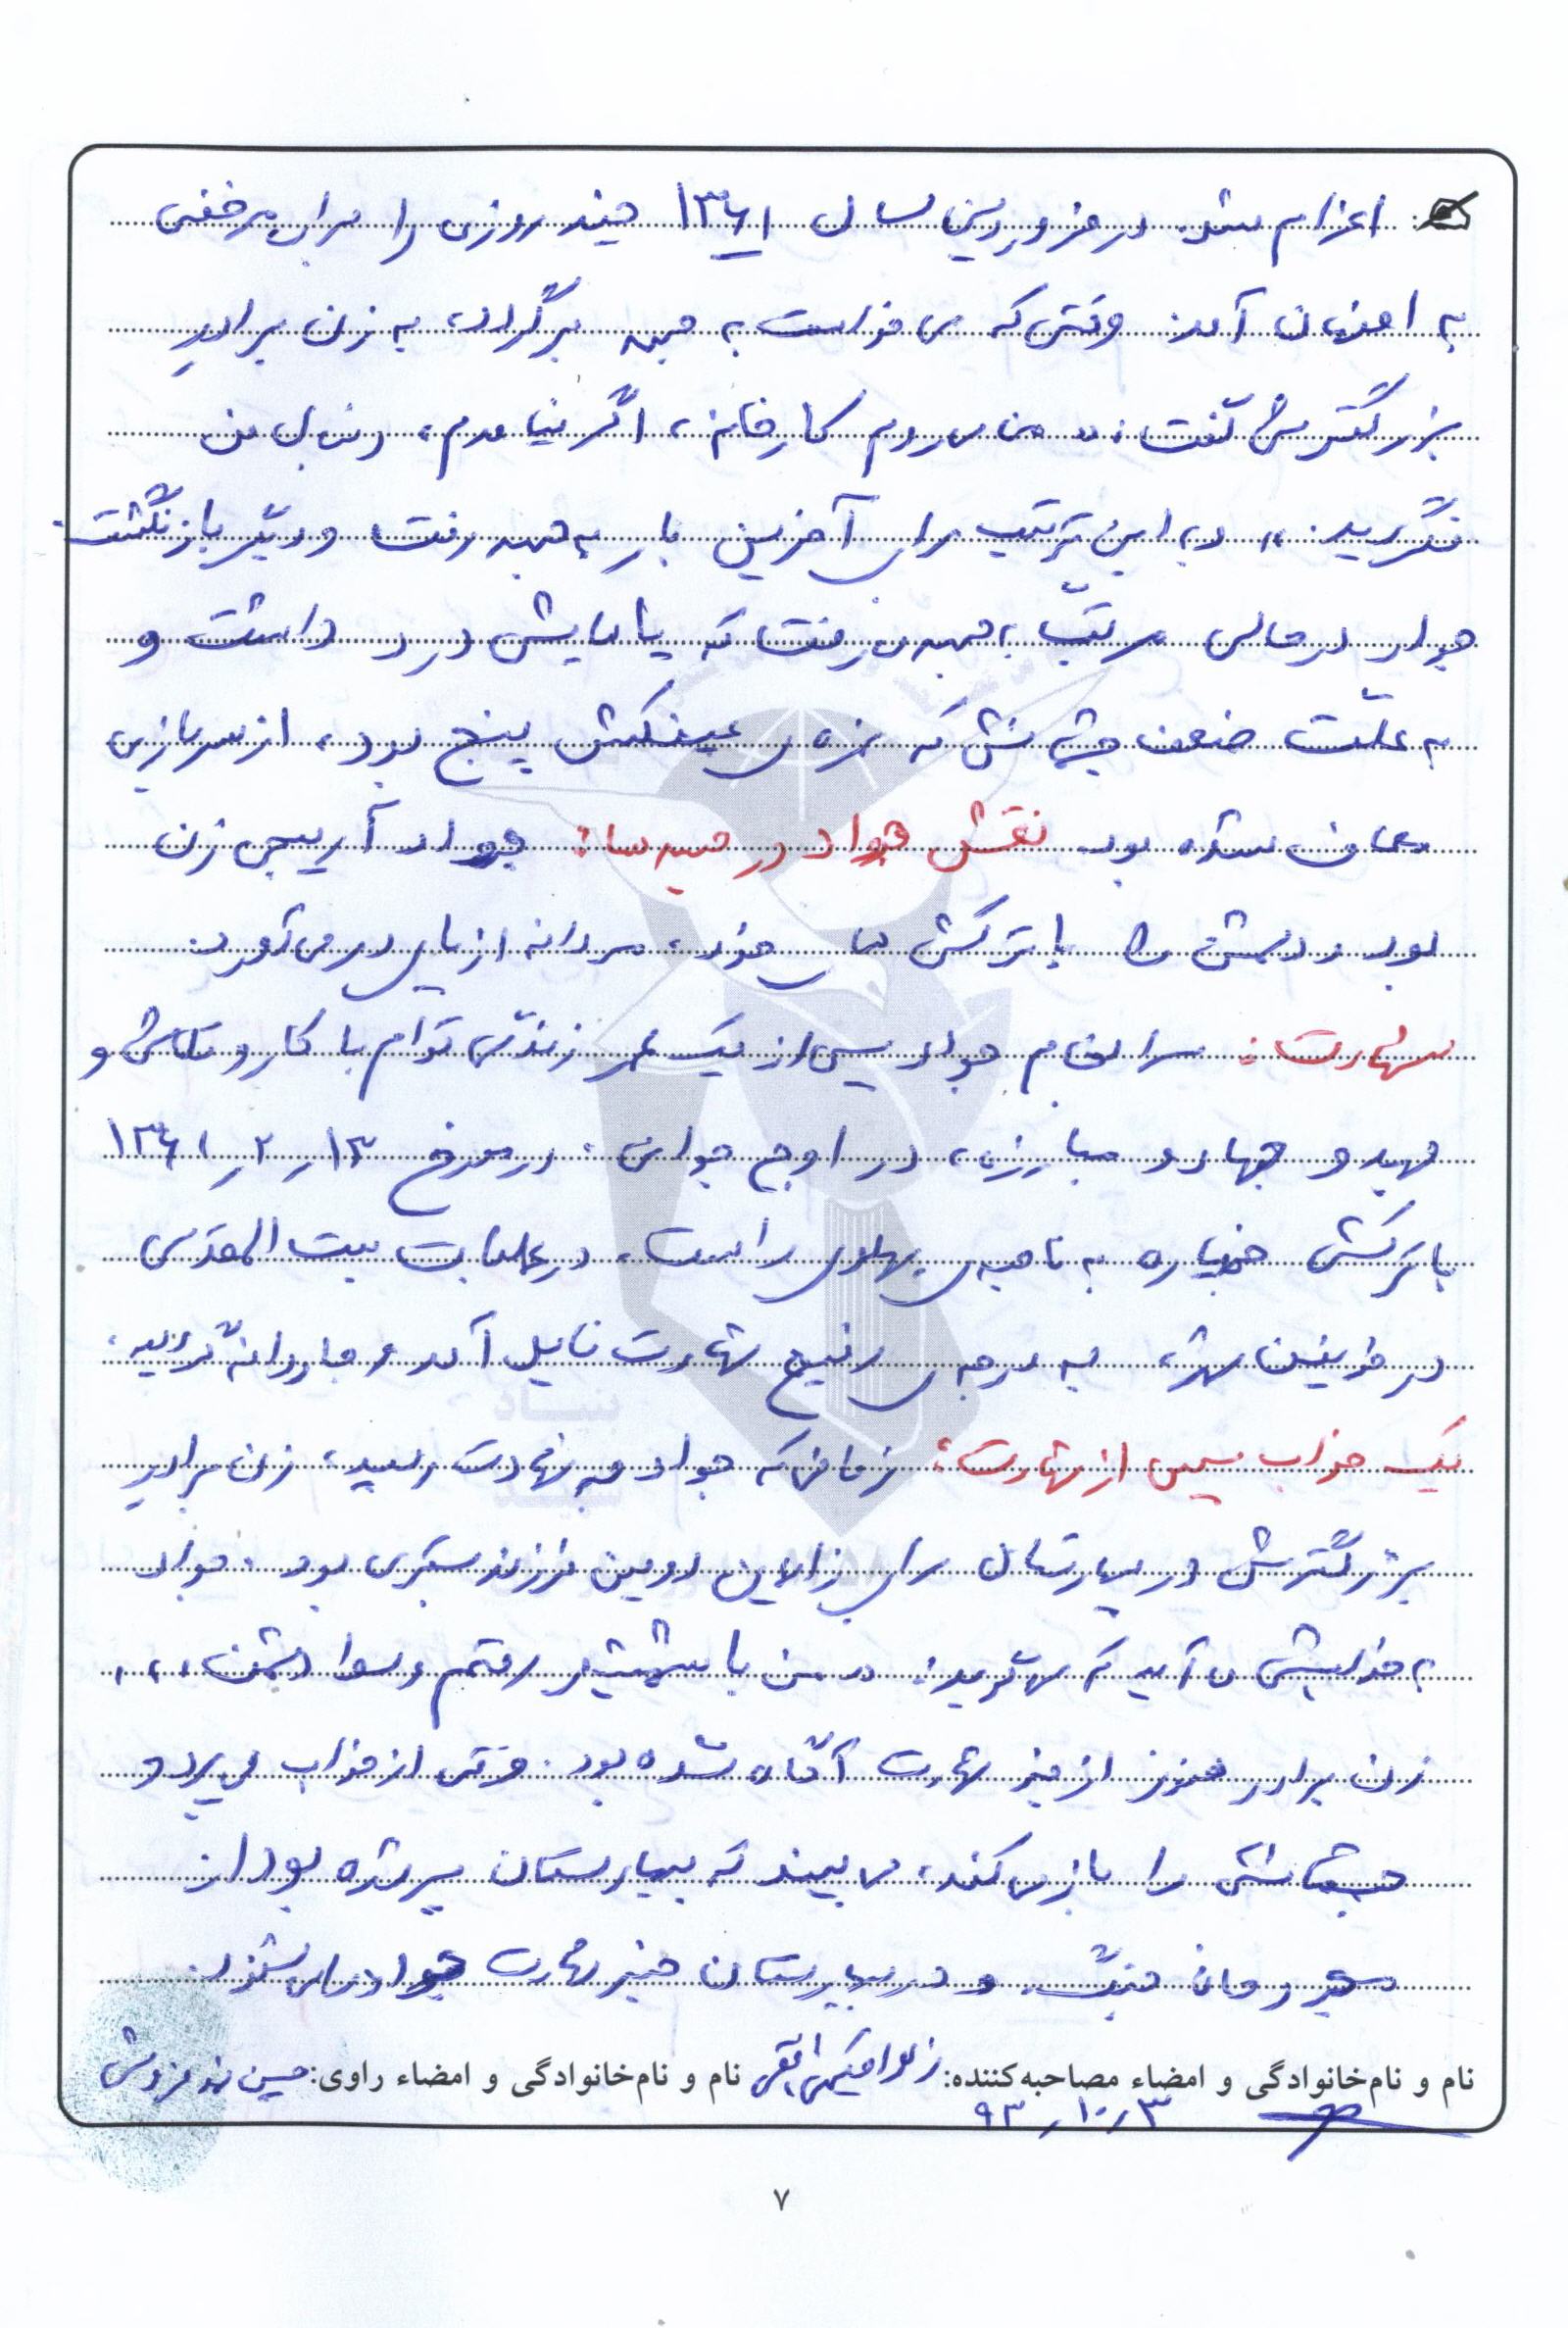 اعزام شد. در فروردین سال ۱۳۶۱ چند روزی را برای مرخصی
به اصفهان آمد. وقتی که می خواست به جبهه برگردد، به زن برادرِ
بزرگترش گفت: «من می روم کارخانه، اگر نیامدم، دنبال من
نگردید.» و به این ترتیب برای آخرین بار به جبهه رفت و دیگر بازنگشت.
جواد در حالی مرتّب به جبهه می رفت که پاهایش درد داشت و
به علّت ضعف چشمانش که نمره ی عینکش پنج بود، از سربازی
معاف شده بود. نقش جواد در جبهه ها: جواد آرپیجی زن
بود و دشمن را با ترکش های خود، مردانه از پای در می آورد.
شهادت: سرانجام جواد پس از یک عمر زندگی توأم با کار و تلاش و
جهد و جهاد و مبارزه، در اوج جوانی، در مورخ ۱۳ر۲ر۱۳۶۱
با ترکش خمپاره به ناحیه ی پهلوی راست، در عملیات بیت المقدس
در خونین شهر، به درجه ی رفیع شهادت نایل آمد و جاودانه گردید.
یک خواب پس از شهادت: زمانی که جواد به شهادت رسید، زن برادر
بزرگترش در بیمارستان برای زایمان دومین فرزند بستری بود. جواد
به خوابش می آید که می گوید: «من با شمشیر رفتم و سوا دشمن ...
زن برادر هنوز از خبر شهادت آگاه نشده بود. وقتی از خواب می پرد و
چشمانش را باز می کند، می بیند که بیمارستان پر شده بود از
مجروحان جنگ. و در بیمارستان خبر شهادت جواد را می شنود.
نام و نام‌خانوادگی و امضاء مصاحبه‌کننده: زهرا نام و نام‌خانوادگی و امضاء راوی: حسین فروش
۹۳ر۱۰ر۳
۷